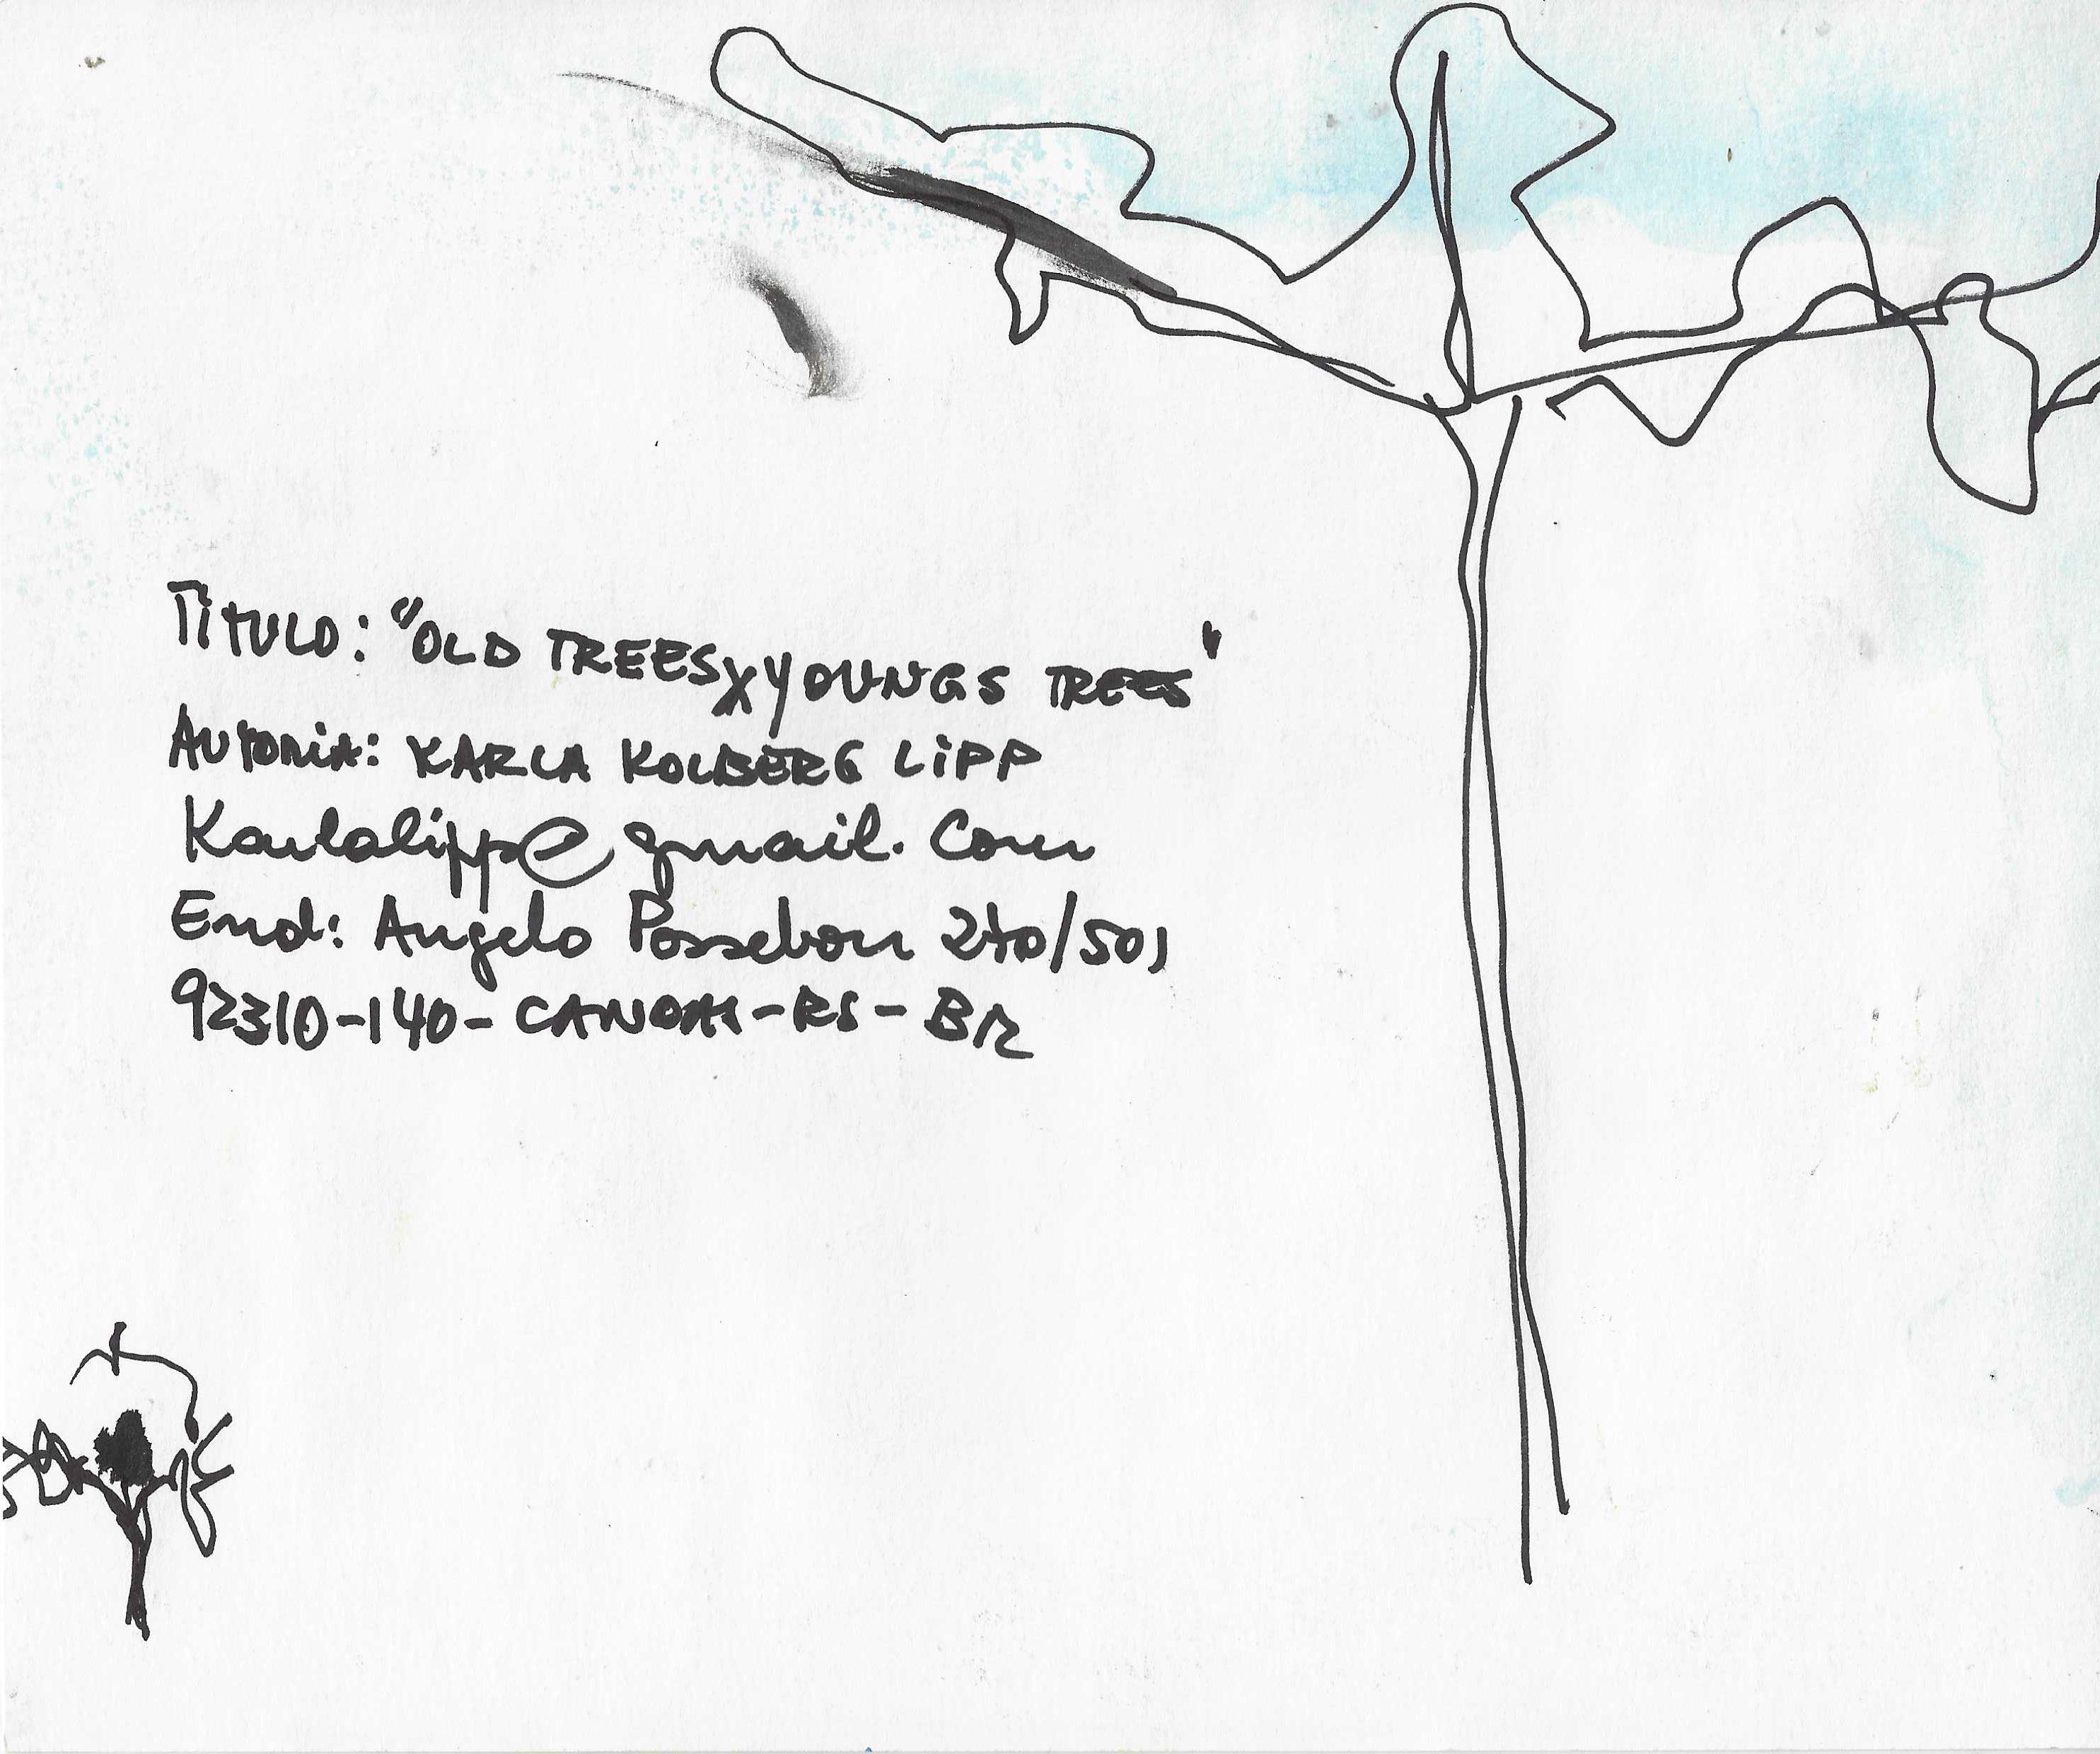 Título: "OLD TREES X YOUNGS TREES"
AUTORIA: KARLA KOLBERG LIPP
Karlalipp@gmail.com
End: Angelo Possebon 270/501
92310-140-CANOAS-RS-BR